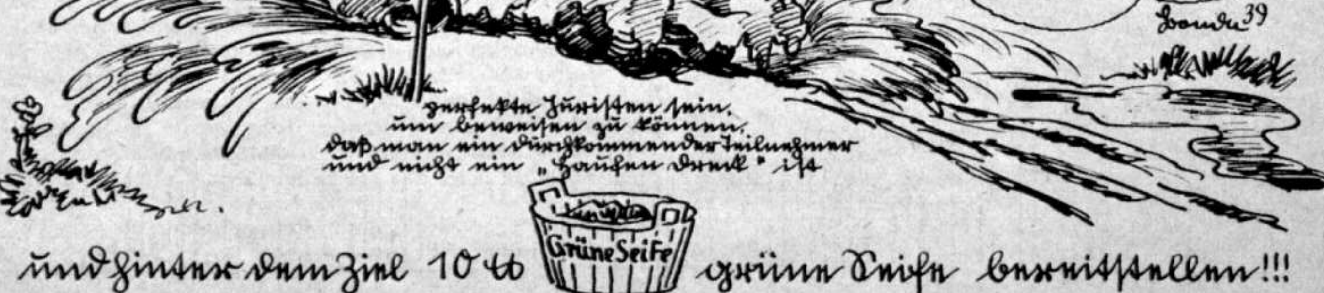 39
perfekte Juristen sein,
um beweisen zu können,
daß man ein durchkommender Teilnehmer
und nicht ein „Haufen Dreck“ ist
Grüne Seife
und hinter dem Ziel 10 ℔ grüne Seife bereitstellen!!!